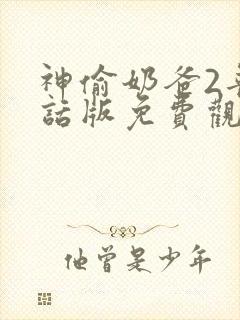 神偷奶爸2
話版免費觀
他曾是少年